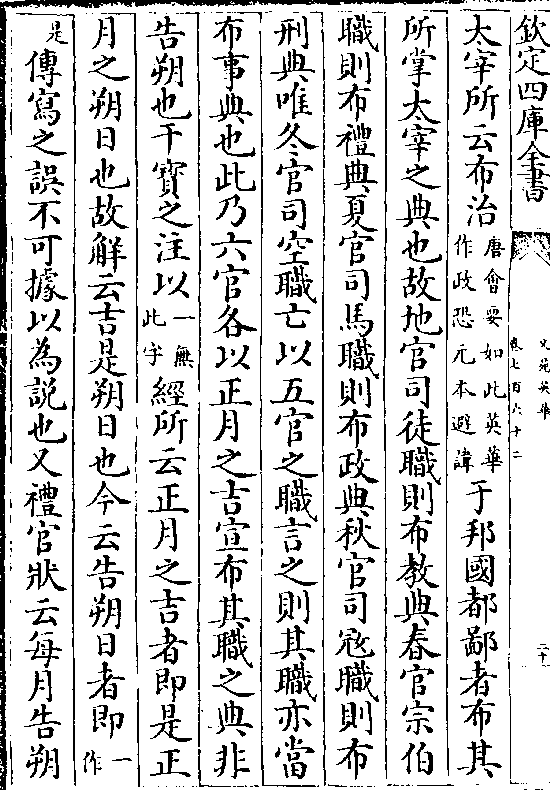 欽定四庫全書
文苑英華
卷七百六十二
二十
太宰所云布治唐會要如此英華作政恐元本避諱于邦國都鄙者布其
所掌太宰之典也故地官司徒職則布教典春官宗伯
職則布禮典夏官司馬職則布政典秋官司寇職則布
刑典唯冬官司空職亡以五官之職言之則其職亦當
布事典也此乃六官各以正月之吉宣布其職之典非
告朔也干寶之注以一無此字經所云正月之吉者即是正
月之朔日也故解云吉是朔日也今云告朔日者即一作
是傳寫之誤不可據以為説也又禮官狀云每月告朔